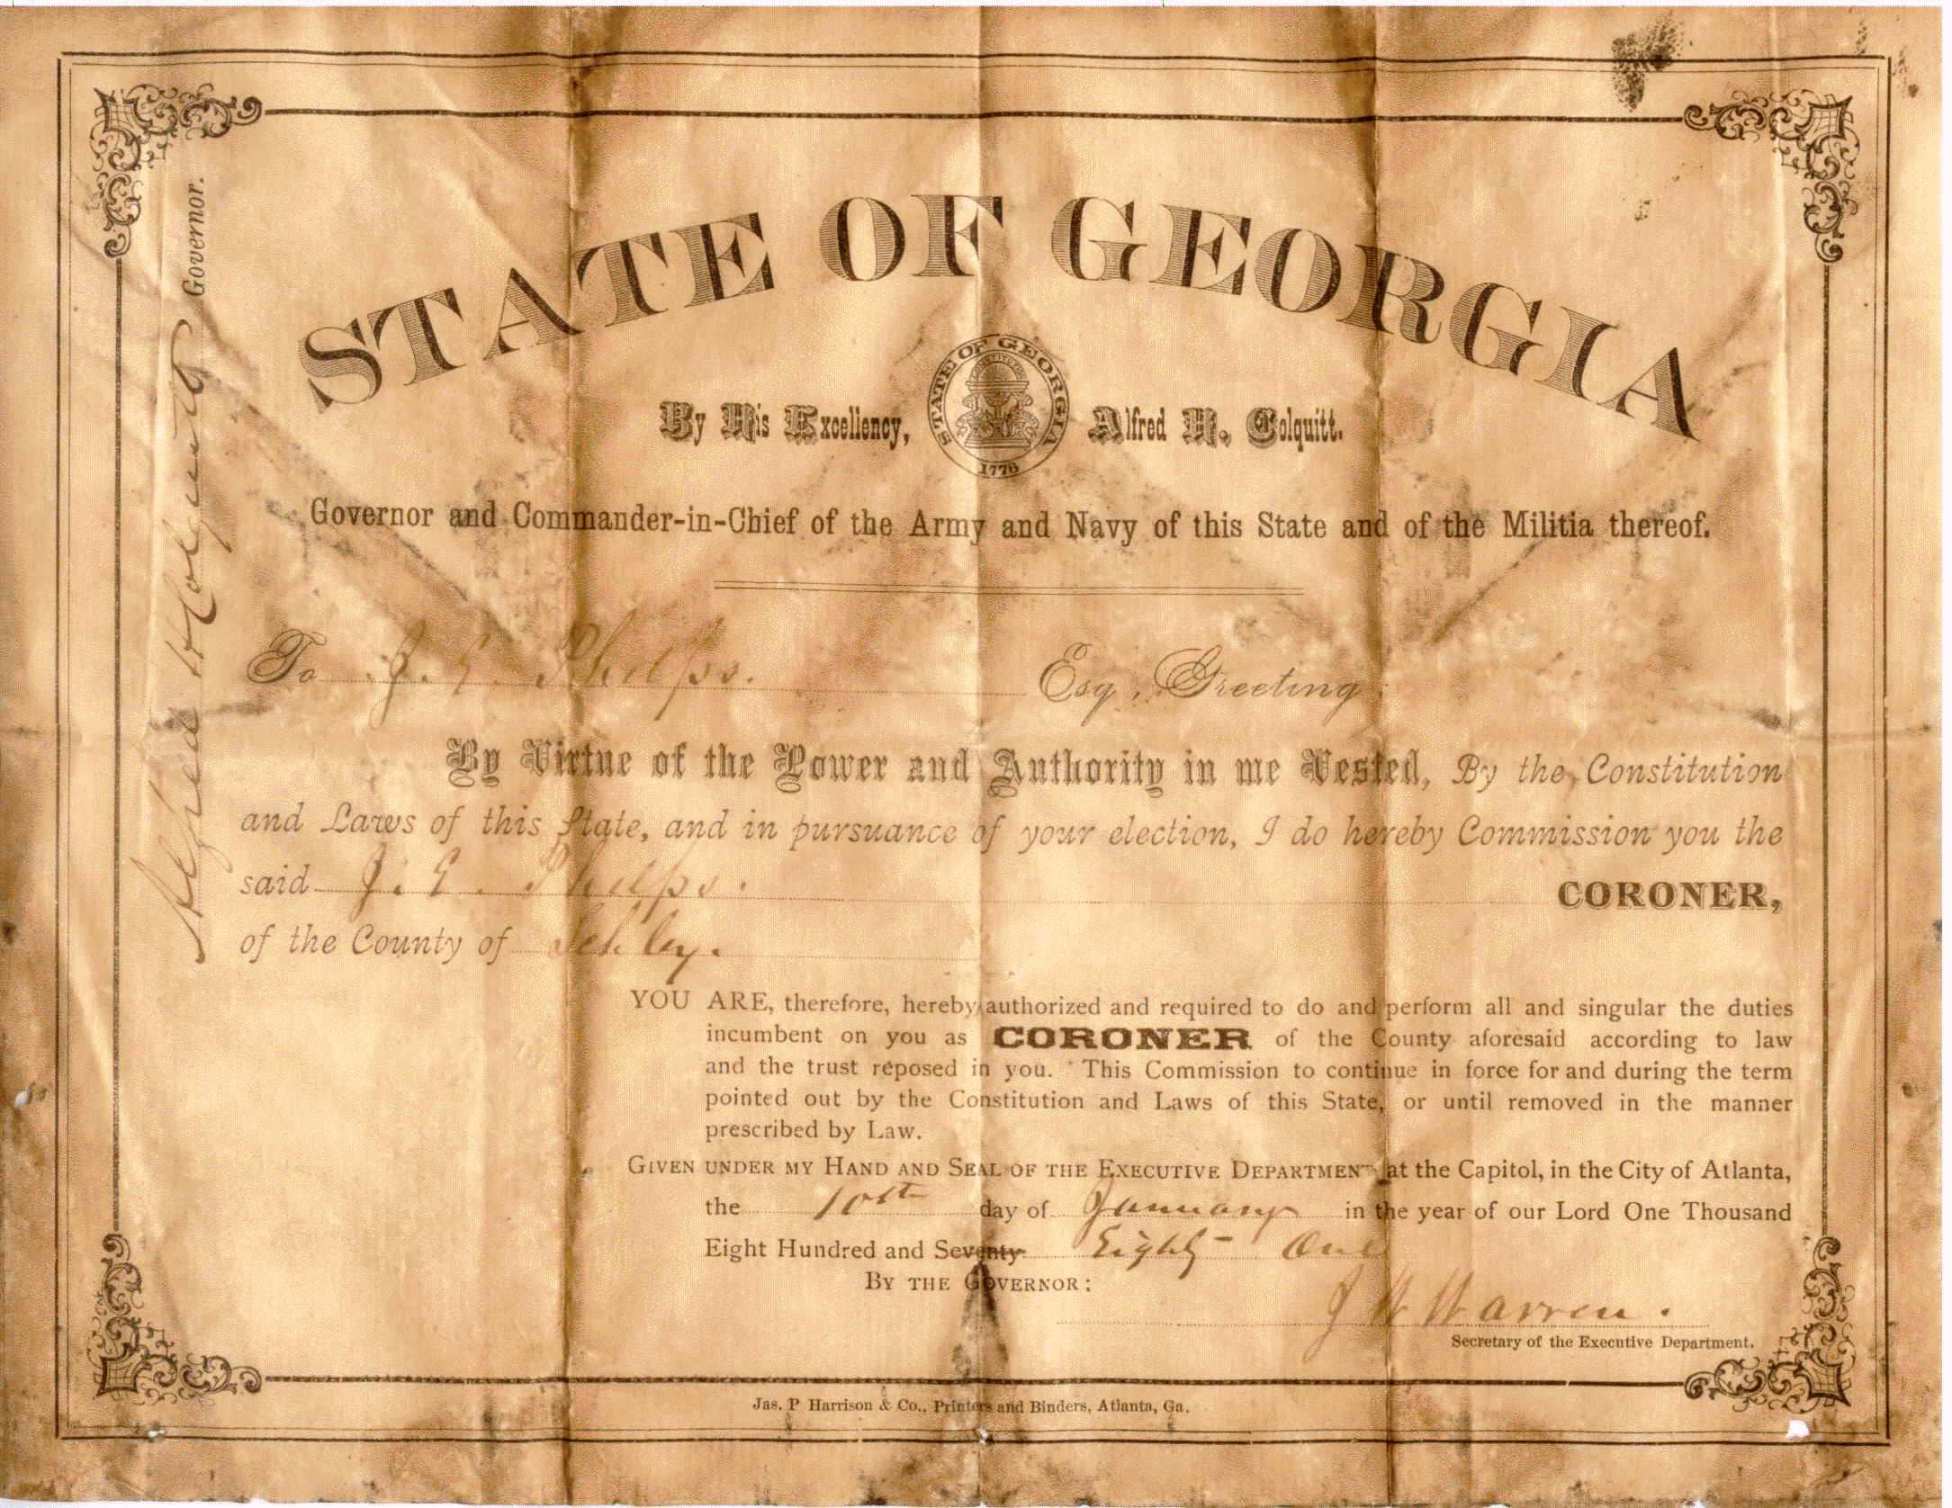 STATE OF GEORGIA
STATE OF GEORGIA
1776
By His Excellency, Alfred H. Colquitt.
Governor and Commander-in-Chief of the Army and Navy of this State and of the Militia thereof.
To J. E. Phelps. Esq, Greeting:
By Virtue of the Power and Authority in me Vested, By the Constitution
and Laws of this State, and in pursuance of your election, I do hereby Commission you the
said J. E. Phelps. CORONER,
of the County of Schley.
YOU ARE, therefore, hereby authorized and required to do and perform all and singular the duties
incumbent on you as CORONER of the County aforesaid according to law
and the trust reposed in you. This Commission to continue in force for and during the term
pointed out by the Constitution and Laws of this State, or until removed in the manner
prescribed by Law.
GIVEN UNDER MY HAND AND SEAL OF THE EXECUTIVE DEPARTMENT at the Capitol, in the City of Atlanta,
the 10th day of January in the year of our Lord One Thousand
Eight Hundred and Seventy Eighty One
BY THE GOVERNOR:
J W Warren.
Secretary of the Executive Department.
Jas. P Harrison & Co., Printers and Binders, Atlanta, Ga.
Alfred H Colquitt Governor.